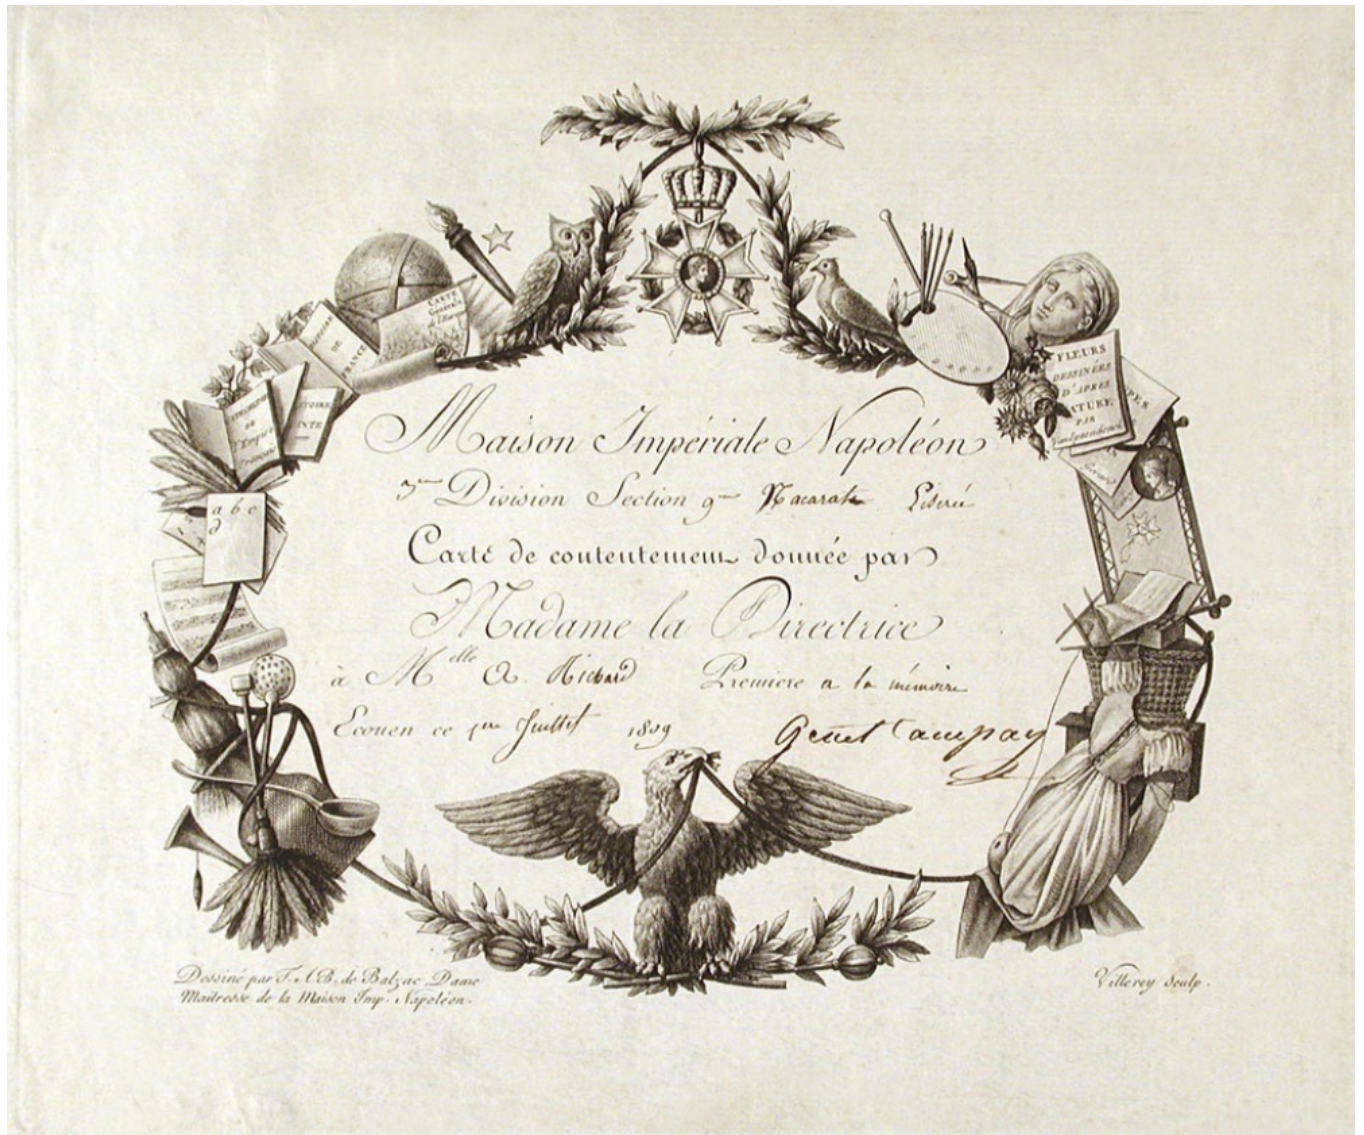 CARTE
Générale
de l'Europe
HISTOIRE
DE
FRANCE
DE
l'Empire
HISTOIRE
SAINTE
a b c
d
FLEURS
DESSINÉES
D'APRES
NATURE.
PAR
Vanspaendonck
Maison Impériale Napoléon
3me Division Section 9me Nacarate Liserée
Carte de contentement donnée par
Madame la Directrice
à Melle A. Richard Premiere a la mémoire
Ecouen ce 1er Juillet 1809 Genet Campan
Dessiné par T. A. B. de Balzac Dame
Maitresse de la Maison Imp. Napoléon.
Villerey Sculp.